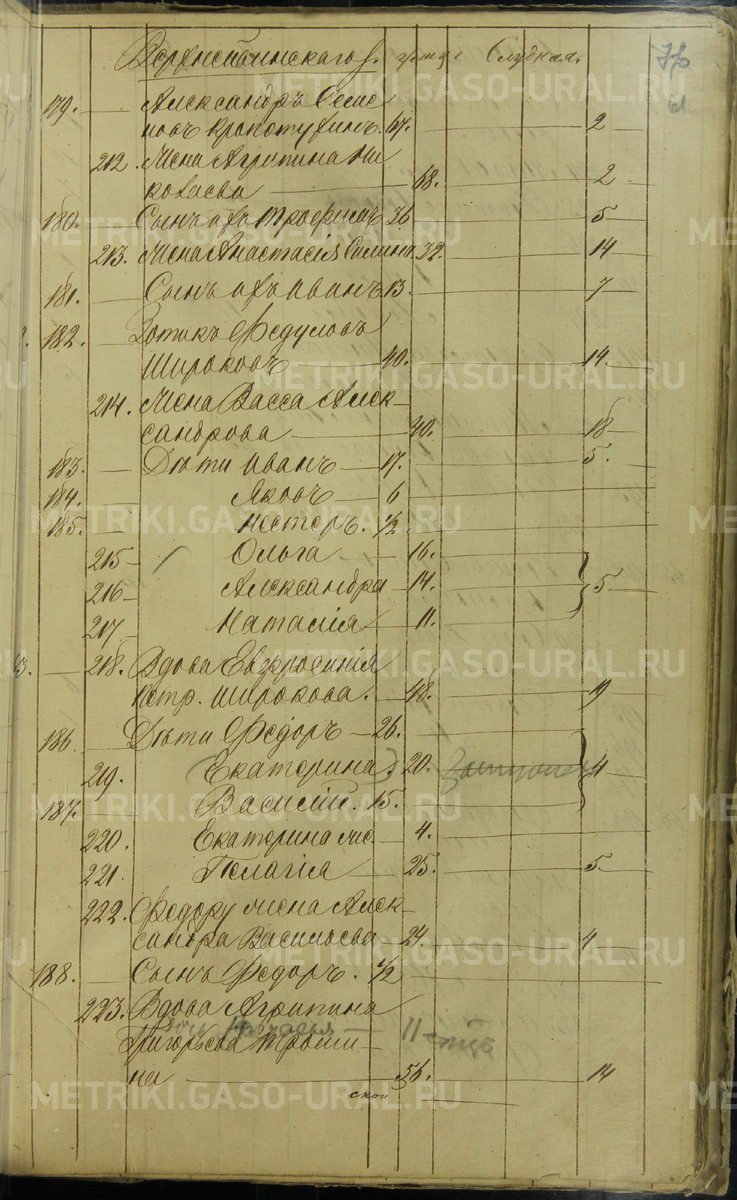 179. Александръ Семе
новъ Кропотухинъ. 67. 2
212. Жена Агрипина Ни
колаева 68. 2
180. Сынъ ихъ Трофимъ 36 5
213. Жена Анастасія 32. 14
181. Сынъ ихъ Иванъ 13. 7
182. Зотикъ Федуловъ
Широковъ 40. 14.
214. Жена Васса Алек-
сандрова 40. 18
183. Дѣти Иванъ 17. 5.
184. Яковъ 6
185. Нестеръ. 1/2
215 Ольга 16.
216 Александра 14. 5
217 Наталія 11.
218. Вдова Евфросинія
Петр. Широкова. 48. 9
186. Дѣти Федоръ 26.
219. Екатерина 20. 4
187. Василій. 15.
220. Екатерина 4.
221. Пелагія 25. 5
222. Федору жена Алек-
сандра Васильева 24. 4
188. Сынъ Федоръ. 1/2
223. Вдова Агрипина
11
Григорьева
на 56. 14
METRIKI.GASO-URAL.RU